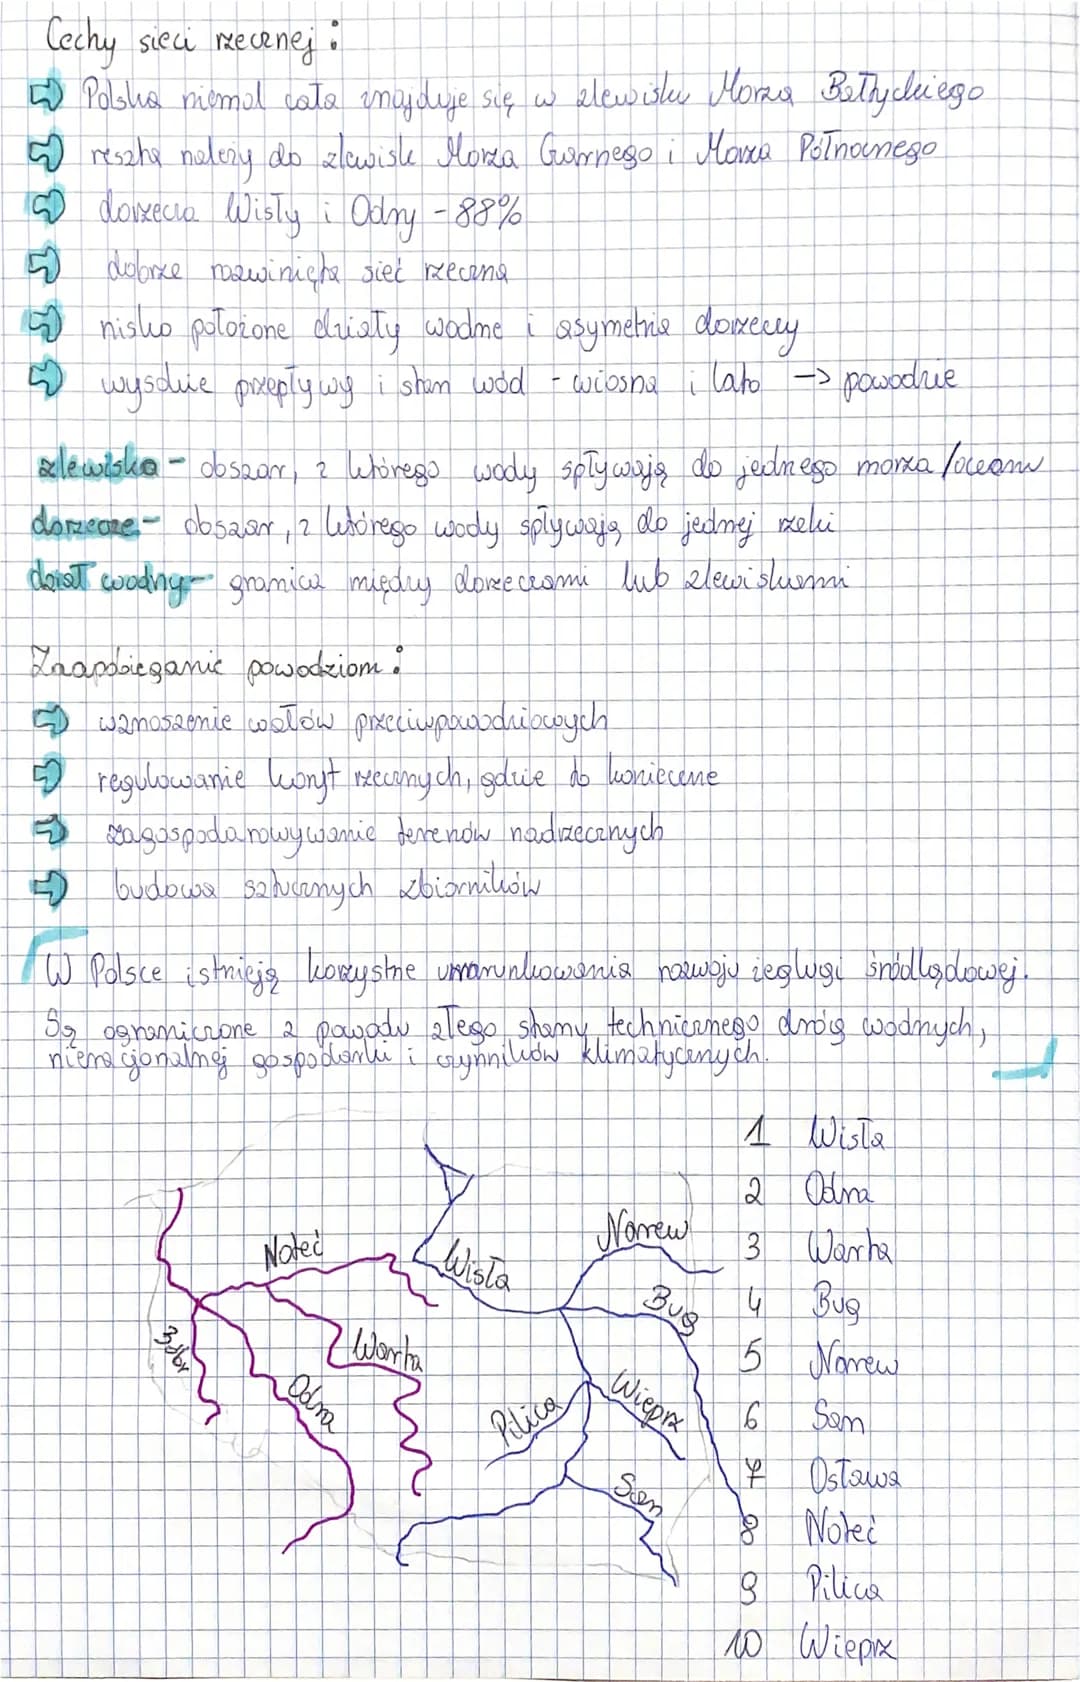 Cechy sieci rzecznej:
Polska niemal cała znajduje się w zlewisku Morza Bałtyckiego
reszta należy do zlewisk Morza Czarnego i Morza Północnego
dorzecza Wisły i Odry - 88%
dobrze rozwinięta sieć rzeczna
nisko położone działy wodne i asymetria dorzeczy
wysokie przepływy i stan wód - wiosna i lato -> powodzie
zlewisko - obszar, z którego wody spływają do jednego morza/oceanu
dorzecze - obszar, z którego wody spływają do jednej rzeki
dział wodny - granica między dorzeczami lub zlewiskami
Zaapobieganie powodziom:
wznoszenie wałów przeciwpowodziowych
regulowanie koryt rzecznych, gdzie to konieczne
zagospodarowywanie terenów nadrzecznych
budowa sztucznych zbiorników
W Polsce istnieją korzystne uwarunkowania rozwoju żeglugi śródlądowej.
Są ograniczone z powodu złego stanu technicznego dróg wodnych,
nieracjonalnej gospodarki i czynników klimatycznych.
1 Wisła
2 Odra
3 Warta
4 Bug
5 Narew
6 San
7 Osława
8 Noteć
9 Pilica
10 Wieprz
Noteć
Wisła
Narew
Bug
Warta
Odra
Pilica
Wieprz
San